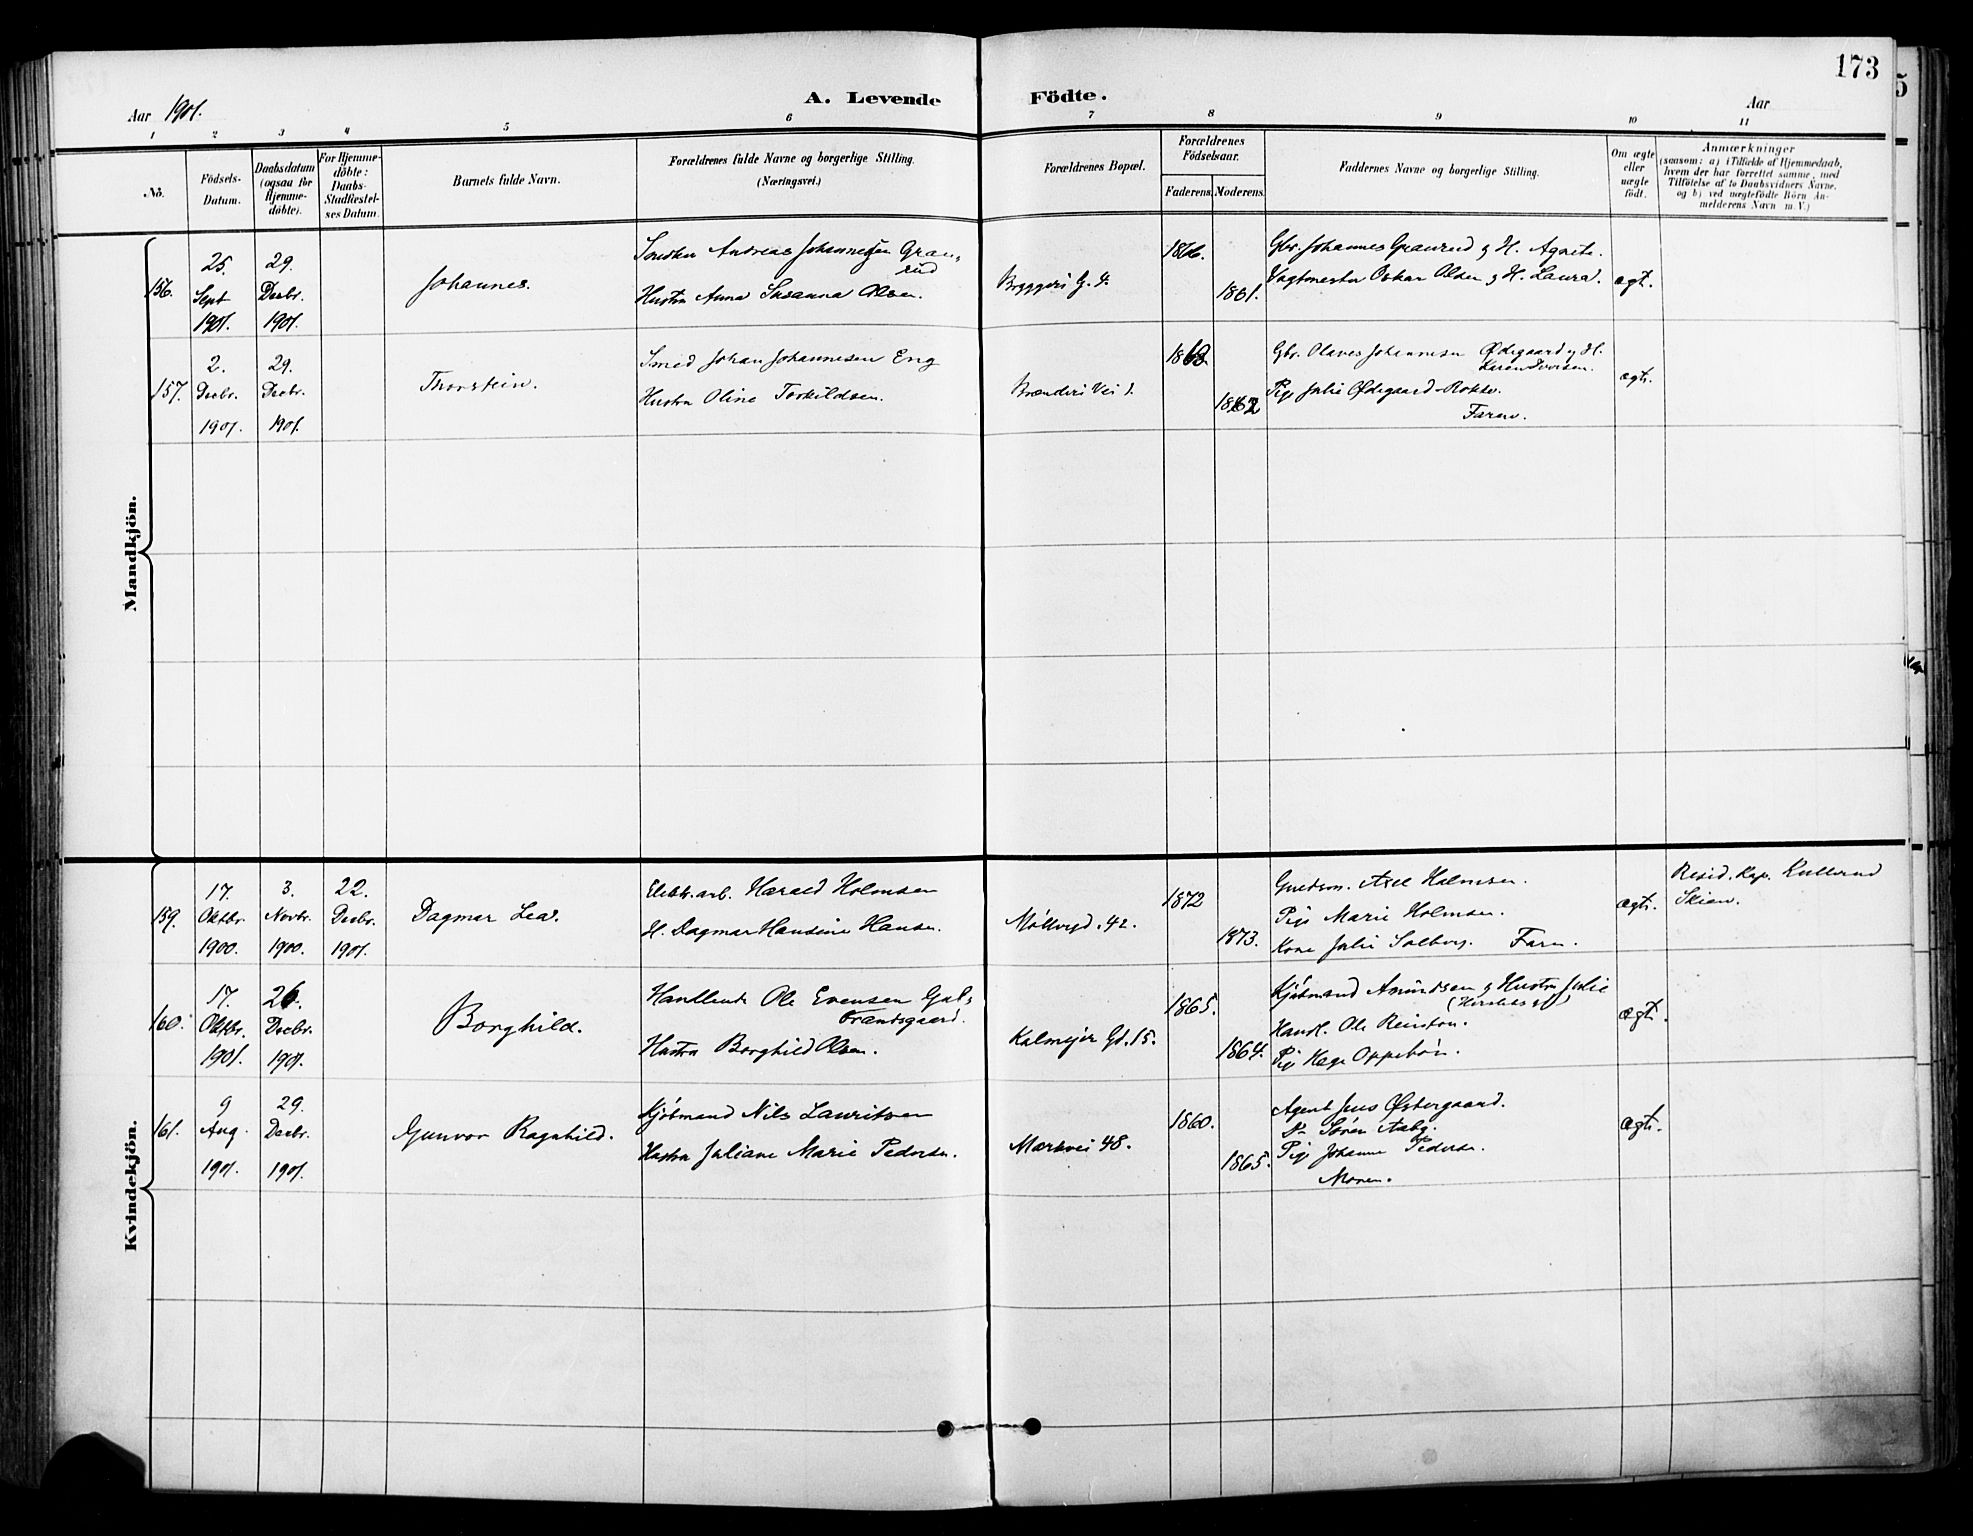 173
Aar 1901.
A. Levende Födte.
Aar
1 2 3 4 5 6 7 8 9 10 11
No.
Födsels-Datum.
Daabsdatum (ogsaa for Hjemme-döbte).
For Hjemme-döbte: Daabs-Stadfæstel-ses Datum.
Barnets fulde Navn.
Forældrenes fulde Navne og borgerlige Stilling.
(Næringsvei.)
Forældrenes Bopæl.
Forældrenes Födselsaar.
Faderens. Moderens.
Faddernes Navne og borgerlige Stilling.
Om ægte eller uægte födt.
Anmærkninger
(saasom: a) i Tilfælde af Hjemmedaab,
hvem der har forrettet samme, med
Tilföielse af to Daabsvidners Navne,
og b) ved uægtefödte Börn An-
melderens Navn m. V.)
Mandkjön.
156.
25. Sept 1901.
29. Decbr. 1901.
Johannes.
Andreas Johannesen Gran-
rud
Hustru Anna Susanna Olsen.
Bryggeri G. 4.
1866.
1861.
Gbr. Johannes Granrud & H. Agnete.
Vagtmester Oskar Olsen & H. Laura.
ægt.
157.
2. Decbr. 1901.
29. Decbr. 1901.
Thorstein.
Smed Johan Johannesen Eng
Hustru Oline Torkildsen.
Brænderi Vei 1.
1862
Gbr. Olaves Johannesen Ødegaard & H.
Pige Julie Ødegaard
Faren.
ægte.
Kvindekjön.
159.
17. Oktbr. 1900.
3. Novbr. 1900.
22. Decbr. 1901.
Dagmar Lea.
Elektr. arb. Harald Holmsen
H. Dagmar Hansine Hansen.
Möllergd. 42.
1872
1873.
Axel Holmsen.
Pige Marie Holmsen.
Kone Julie Solberg. Faren.
ægte.
Resid. Kap. Kullerud
Skien.
160.
17. Oktbr. 1901.
26. Decbr. 1901.
Borghild.
Handlende Ole Evensen Gul-
brandsgaard.
Hustru Borghild Olsen.
Kalmejer Gd. 15.
1865.
1864.
Kjöbmand Amundsen & Hustru Julie
Handl. Ole Reinton.
Pige Hege Oppebön.
ægte.
161.
9 Aug. 1901.
29. Decbr. 1901.
Gunvor Ragnhild.
Kjöbmand Nils Lauritsen
Hustru Juliane Marie Pedersen.
Markvei 48.
1860.
1865.
Agent Jens Østergaard.
Do Sören Aaby.
Pige Johanne Pedersen.
Moren.
ægte.